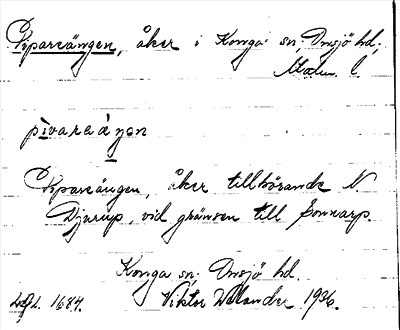 Pipareängen, åker i Konga sn, Onsjö hd,
Malm. l.
pìvaraáŋen
Pipareängen, åker tillhörande N.
Djurup, vid gränsen till Sonnarp.
Konga sn. Onsjö hd.
1684. Viktor Wilander 1936.